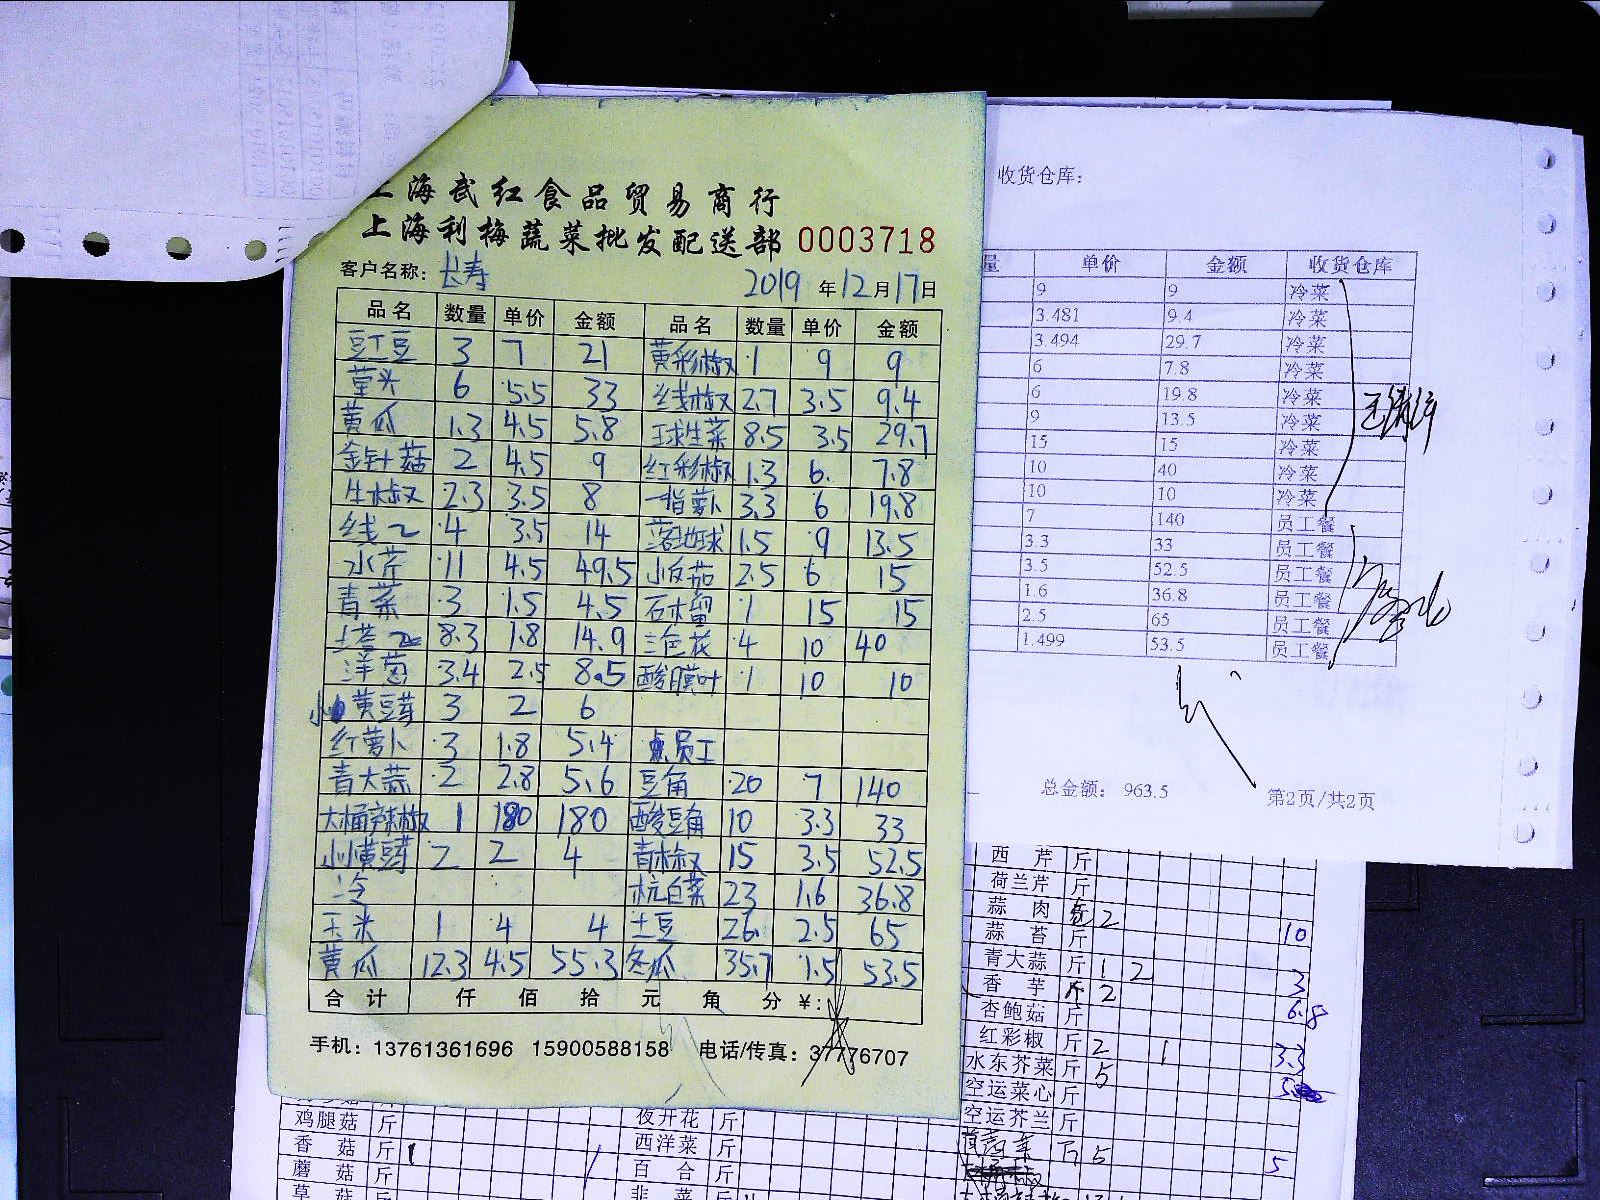 上海武红食品贸易商行
上海利梅蔬菜批发配送部 0003718
客户名称: 长寿 2019 年 12 月 17 日
品名 数量 单价 金额 品名 数量 单价 金额
豇豆 3 7 21 黄彩椒 1 9 9
茼头 6 5.5 33 线椒 2.7 3.5 9.4
黄瓜 1.3 4.5 5.8 球生菜 8.5 3.5 29.7
金针菇 2 4.5 9 红彩椒 1.3 6 7.8
牛椒 2.3 3.5 8 指萝卜 3.3 6 19.8
线 4 3.5 14 落地球 1.5 9 13.5
水芹 11 4.5 49.5 小反茄 2.5 6 15
青菜 3 1.5 4.5 石榴 1 15 15
8.3 1.8 14.9 三色花 4 10 40
洋葱 3.4 2.5 8.5 酸膜叶 1 10 10
小黄豆芽 3 2 6
红萝卜 3 1.8 5.4 员工
青大蒜 2 2.8 5.6 豆角 20 7 140
大桶辣椒 1 180 180 酸豆角 10 3.3 33
小黄豆芽 2 2 4 青椒 15 3.5 52.5
冷 杭白菜 23 1.6 36.8
玉米 1 4 4 土豆 26 2.5 65
黄瓜 12.3 4.5 55.3 冬瓜 35.7 1.5 53.5
合计 仟 佰 拾 元 角 分 ¥:
手机: 13761361696 15900588158 电话/传真: 37776707
收货仓库:
量 单价 金额 收货仓库
9 9 冷菜
3.481 9.4 冷菜
3.494 29.7 冷菜
6 7.8 冷菜
6 19.8 冷菜
9 13.5 冷菜
15 15 冷菜
10 40 冷菜
10 10 冷菜
7 140 员工餐
3.3 33 员工餐
3.5 52.5 员工餐
1.6 36.8 员工餐
2.5 65 员工餐
1.499 53.5 员工餐
总金额: 963.5 第2页/共2页
西芹 斤
荷兰芹 斤
蒜肉 2
蒜苔 斤 10
青大蒜 斤 1 2
香芋 斤 2 3
杏鲍菇 斤 6.8
红彩椒 斤 2 1 3.3
水东芥菜 斤 5
空运菜心 斤
空运芥兰 斤
5 5
鸡腿菇 斤 夜开花 斤
香菇 斤 1 西洋菜 斤
蘑菇 斤 百合 斤
草菇 斤 韭菜 斤